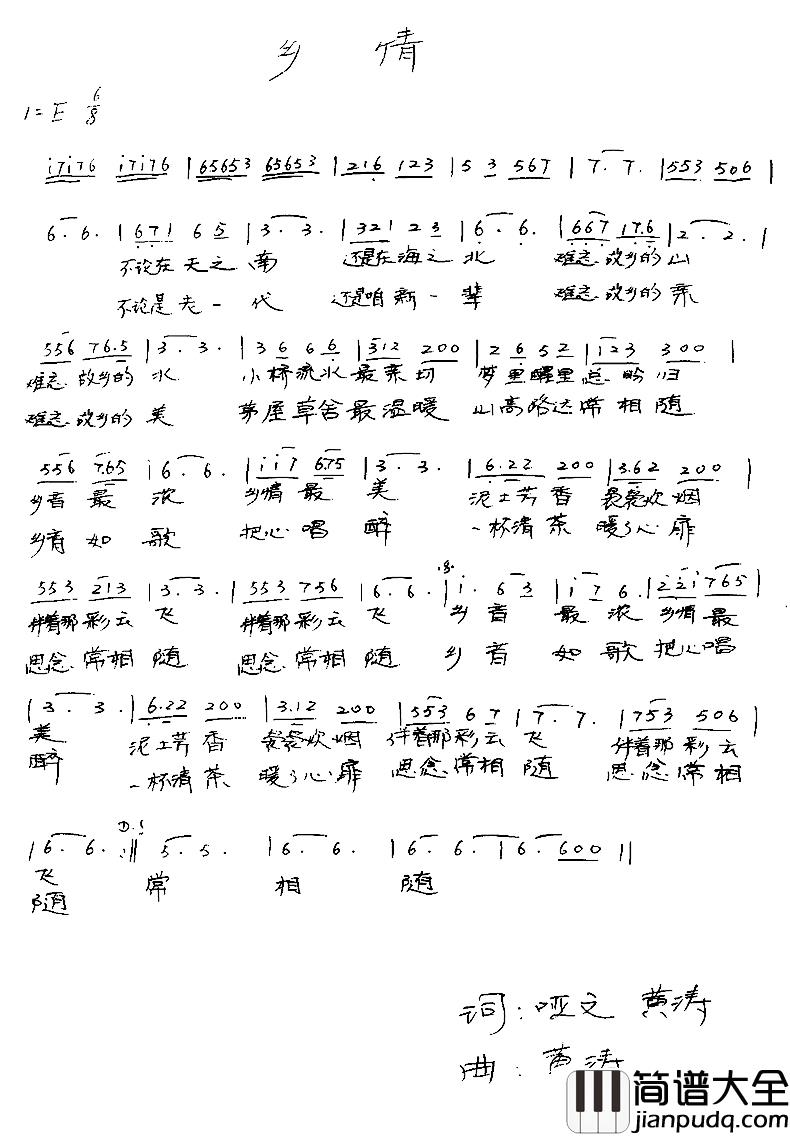 乡 情
1=E 6/8
i7i76 i7i76 | 65653 65653 | 216 123 | 5 3 567 | 7. 7. | 553 506 |
6. 6. | 671 65 | 3. 3. | 321 23 | 6. 6. | 667 17.6 | 2. 2. |
不论在天之南 还是在海之北 难忘故乡的山
不论是先一代 还是咱新一辈 难忘故乡的亲
556 76.5 | 3. 3. | 36 66 | 312 200 | 26 52 | i23 300 |
难忘故乡的水 小桥流水最亲切 梦里醒里总盼归
难忘故乡的美 茅屋草舍最温暖 山高路远常相随
556 7.65 | 6. 6. | ii7 6.75 | 3. 3. | 6.22 200 | 3.62 200 |
乡音最浓 乡情最美 泥土芳香 袅袅炊烟
乡音如歌 把心唱醉 一杯清茶 暖了心扉
553 213 | 3. 3. | 553 756 | 6. 6. | i. 63 | i7 6. | 22i 765 |
伴着那彩云飞 伴着那彩云飞 乡音最浓 乡情最
思念常相随 思念常相随 乡音如歌 把心唱
| 3. 3. | 6.22 200 | 3.12 200 | 553 67 | 7. 7. | 753 506 |
美 泥土芳香 袅袅炊烟 伴着那彩云飞 伴着那彩云
醉 一杯清茶 暖了心扉 思念常相随 思念常相
D.S
| 6. 6. :|| 5. 5. | 6. 6. | 6. 6. | 6. 600 ||
飞 常 相 随
随
词:哑文 黄涛
曲:黄涛
简谱大全
jianpudq.com